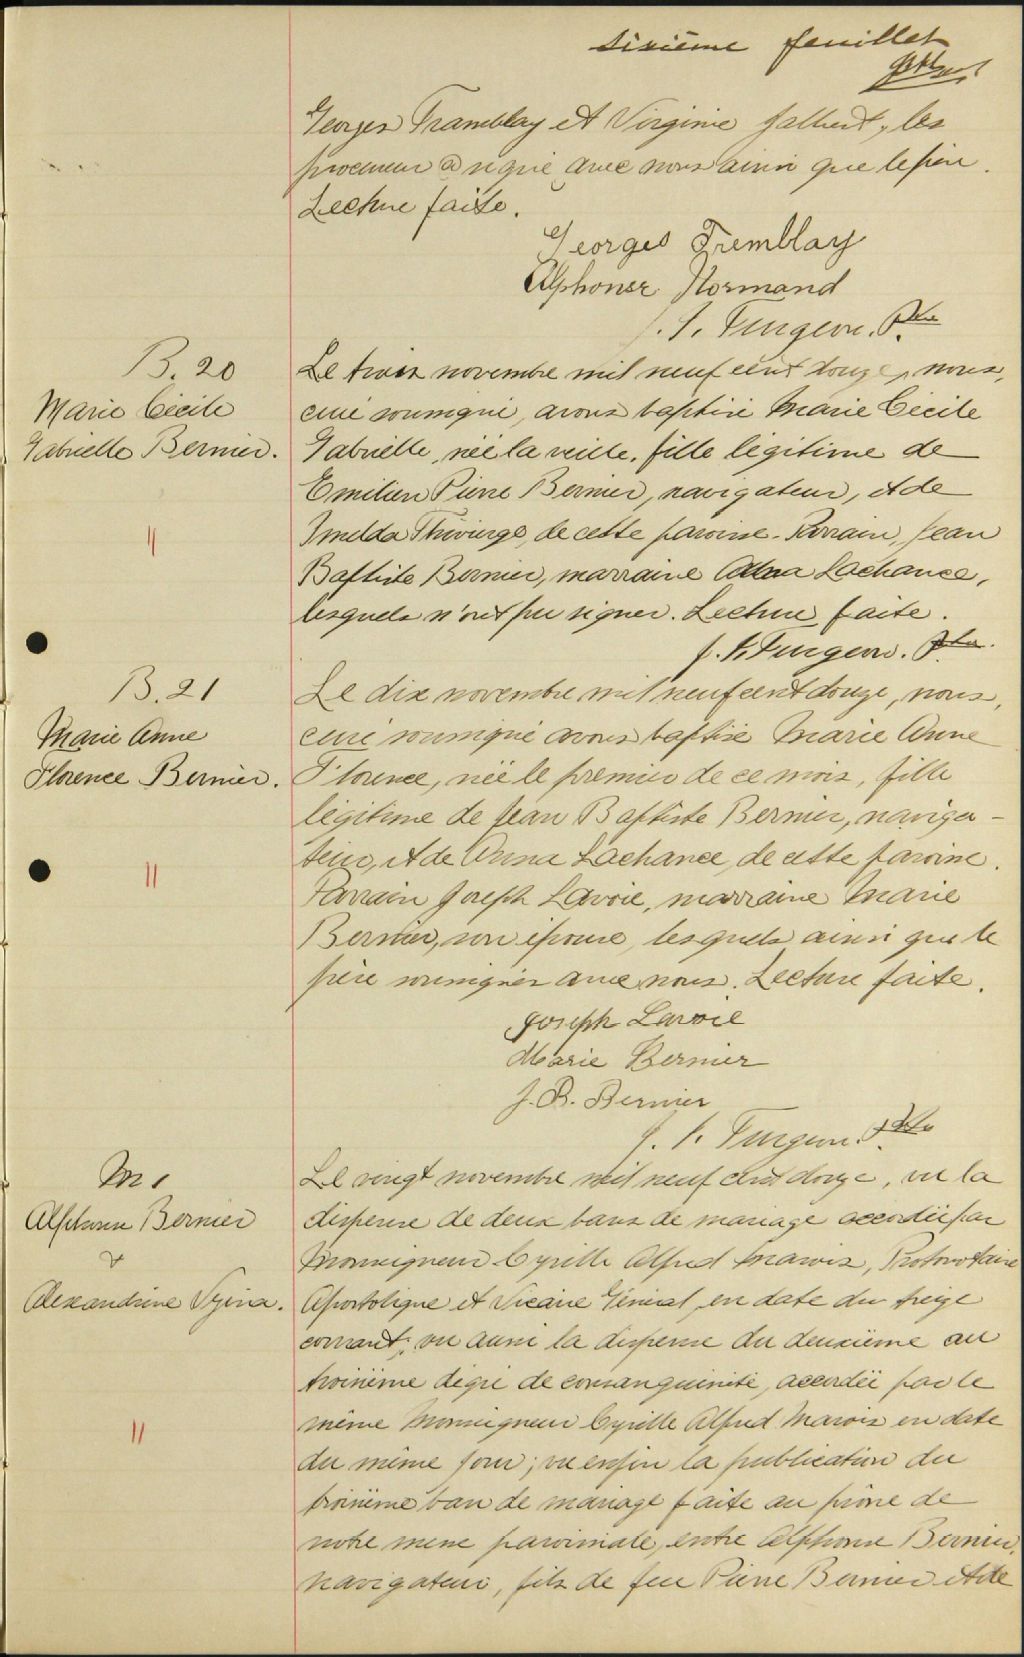 sixième feuillet
Georges Tramblay et Virginie Jalbert, les
procureur a signé avec nous ainsi que le père.
Lecture faite.
Georges Tremblay
Alphonse Normand
J. S. Turgeon. Ptre
B. 20
Marie Cécile
Gabrielle Bernier.
Le trois novembre mil neuf cent douze, nous,
curé soussigné, avons baptisé Marie Cécile
Gabrielle, née la veille, fille légitime de
Emilien Pierre Bernier, navigateur, et de
Imelda Thivierge, de cette paroisse. Parrain, Jean
Baptiste Bernier, marraine Lachance,
lesquels n'ont pu signer. Lecture faite.
J. S. Turgeon. Ptre.
B. 21
Marie Anne
Florence Bernier.
Le dix novembre mil neuf cent douze, nous,
curé soussigné avons baptisé Marie Anne
Florence, née le premier de ce mois, fille
légitime de Jean Baptiste Bernier, naviga-
teur, et de Anna Lachance, de cette paroisse.
Parrain Joseph Lavoie, marraine Marie
Bernier, son épouse, lesquels ainsi que le
père soussignés avec nous. Lecture faite.
Joseph Lavoie
Marie Bernier
J. B. Bernier
J. S. Turgeon. Ptre
M 1
Alphonse Bernier
&
Alexandrine Vézina.
Le vingt novembre mil neuf cent douze, vu la
dispense de deux bans de mariage accordée par
Monseigneur Cyrille Alfred Marois, Protonotaire
Apostolique et Vicaire Général, en date du treize
courant; vu aussi la dispense du deuxième au
troisième degré de consanguinité, accordée par le
même Monseigneur Cyrille Alfred Marois en date
du même jour; vu enfin la publication du
troisième ban de mariage faite au prône de
notre messe paroissiale, entre Alphonse Bernier,
navigateur, fils de feu Pierre Bernier et de